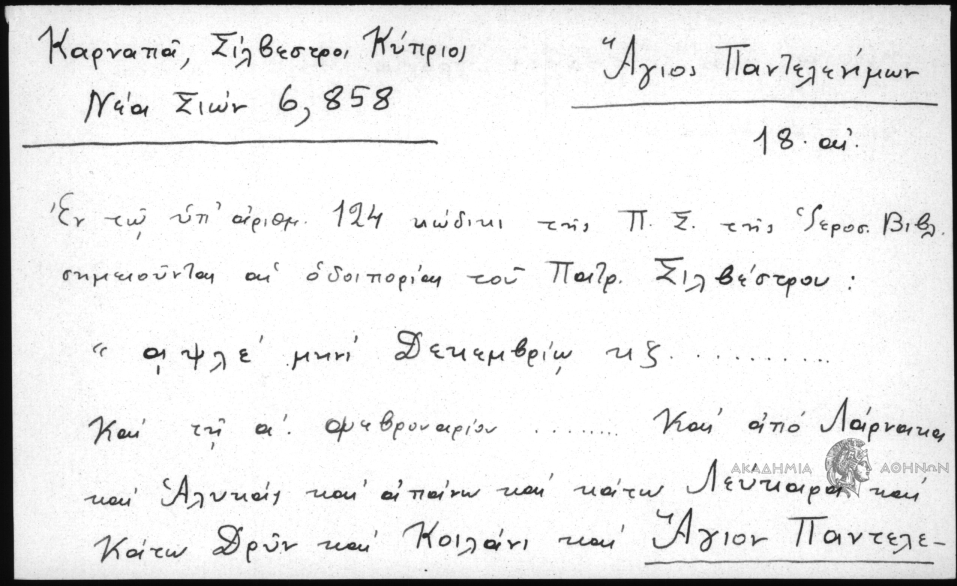 Καρναπᾶ, Σίλβεστρος Κύπριος
Νέα Σιών 6, 858
Ἅγιος Παντελεήμων
18. αἰ.
Ἐν τῷ ὑπ' ἀριθμ. 124 κώδικι τῆς Π. Σ. τῆς Ἱεροσ. Βιβλ.
σημειοῦνται αἱ ὁδοιπορίαι τοῦ Πατρ. Σιλβέστρου :
" αψλε' μηνί Δεκεμβρίῳ κζ ...........
Καί τῇ α'. φεβρουαρίου ........ Καί ἀπό Λάρνακα
καί Ἁλυκάς καί ἀπάνω καί κάτω Λεύκαρα καί
Κάτω Δρῦν καί Κοιλάνι καί Ἅγιον Παντελε-
ΑΚΑΔΗΜΙΑ ΑΘΗΝΩΝ